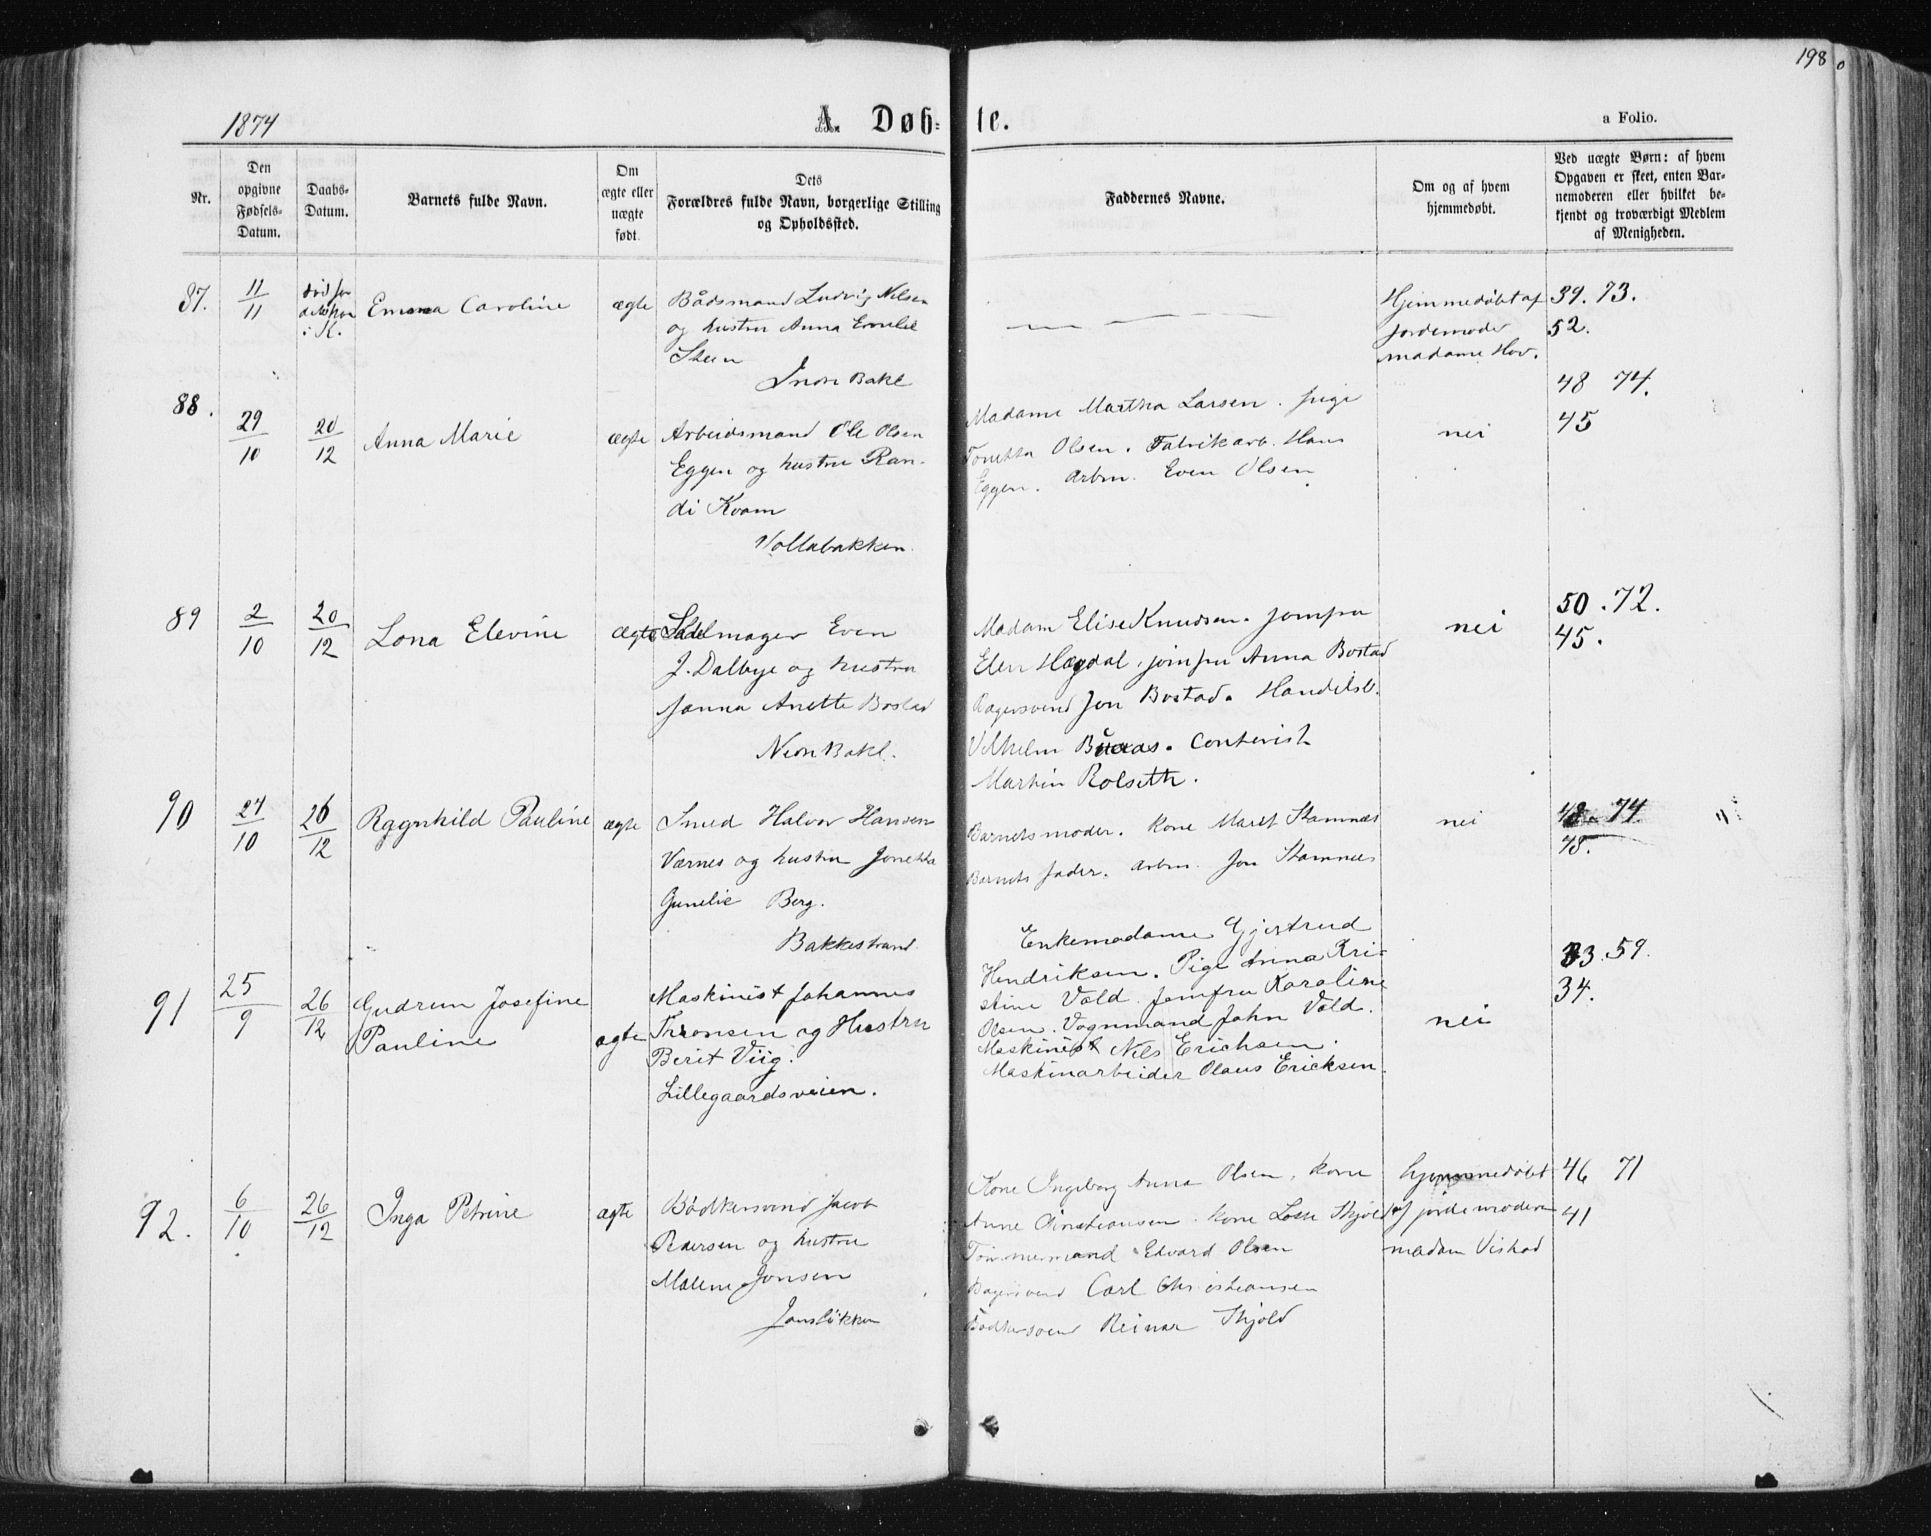 198
1874
A. Døb-
te.
a Folio.
Nr.
Den opgivne Fødsels-Datum.
Daabs-Datum.
Barnets fulde Navn.
Om ægte eller uægte født.
Dets Forældres fulde Navn, borgerlige Stilling og Opholdssted.
Faddernes Navne.
Om og af hvem hjemmedøbt.
Ved uægte Børn: af hvem Opgaven er skeet, enten Barnemoderen eller hvilket bekjendt og troværdigt Medlem af Menigheden.
87. 11/11
i K.
Emma Caroline
ægte
Bådsmand Ludvig Nilsen
og hustru Anna Emelie
Steen
Bakl
Hjemmedøbt af
jordemoder
madame Hov.
39. 73.
52.
88. 29/10 20/12
Anna Marie
ægte
Arbeidsmand Ole Olsen
Eggen og hustru Ran-
di Kvam
Vollabakken.
Madame Martha Larsen. pige
Tonetta Olsen. Fabrikarb. Hans
Eggen. arbm. Even Olsen
nei
48 74.
45
89 2/10 20/12
Lona Elevine
ægte
Sadelmager Even
J. Dalbye og hustru
Janna Anette Bostad
Bakl.
Madam Elise Knudsen. Jomfru
Elen Hægdal, jomfru Anna Bostad
Jon Bostad. Handelsb.
Vilhelm Contorist
Martin Rolseth.
nei
50. 72.
45.
90 27/10 26/12
Ragnhild Pauline
ægte
Smed Halvor Hansen
Værnes og hustru Jonetta
Gunelie Berg.
Bakkestrand
Barnets moder. kone Maret Stamnæs
Barnets fader. arbm. Jon Stamnæs
nei
48. 74.
91 25/9 26/12
Gudrun Josefine
Pauline
ægte
Maskinist Johannes
Tronsen og Hustru
Berit Viig.
Lillegaardsveien.
Enkemadame Gjertrud
Hendriksen. Pige Anna Kri-
stine Vold. Jomfru Karoline
Olsen. Vognmand John Vold.
Maskinist Nils Erichsen.
Maskinarbeider Olaus Ericksen.
nei
33. 59.
34.
92. 6/10 26/12
Inga Petrine
ægte
Bødkersvend Jacob
Pedersen og hustru
Malene Jonsen
Jonsløkken
Kone Ingeborg Anna Olsen, kone
Anne Christiansen. kone Skjold
Tømmermand Edvard Olsen
Bagersvend Carl Christiansen
Bødkersvend Reinar Skjold
hjemmedøbt
af jordemoderen
madam
46 71
41